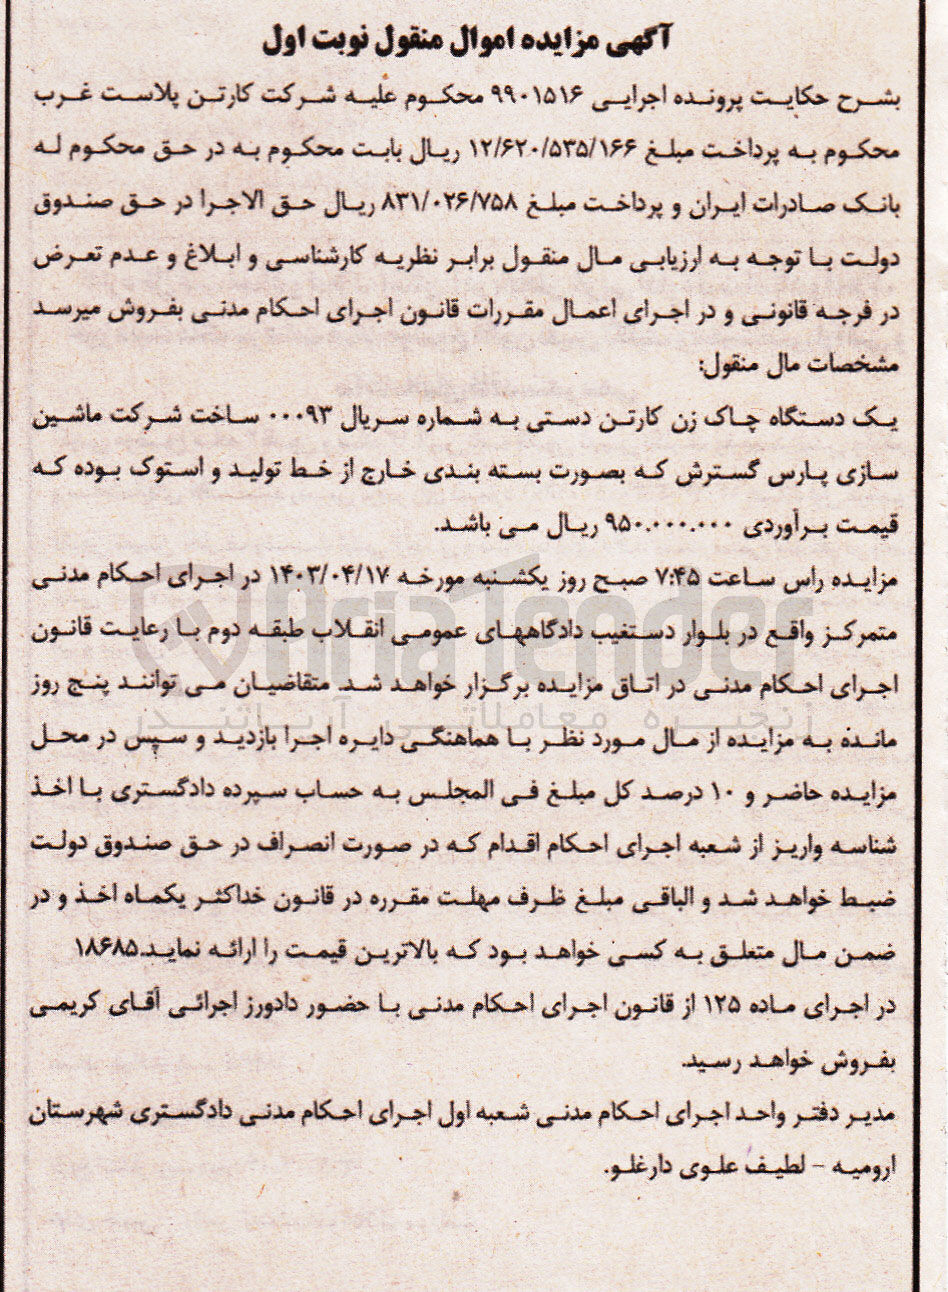 آگهی مزایده اموال منقول نوبت اول
بشرح حکایت پرونده اجرایی ۹۹۰۱۵۱۶ محکوم علیه شرکت کارتن پلاست غرب
محکوم به پرداخت مبلغ ۱۲/۶۲۰/۵۳۵/۱۶۶ ریال بابت محکوم به در حق محکوم له
بانک صادرات ایران و پرداخت مبلغ ۸۳۱/۰۲۶/۷۵۸ ریال حق الاجرا در حق صندوق
دولت با توجه به ارزیابی مال منقول برابر نظریه کارشناسی و ابلاغ و عدم تعرض
در فرجه قانونی و در اجرای اعمال مقررات قانون اجرای احکام مدنی بفروش میرسد
مشخصات مال منقول:
یک دستگاه چاک زن کارتن دستی به شماره سریال ۰۰۰۹۳ ساخت شرکت ماشین
سازی پارس گسترش که بصورت بسته بندی خارج از خط تولید و استوک بوده که
قیمت برآوردی ۹۵۰.۰۰۰.۰۰۰ ریال می باشد.
مزایده راس ساعت ۷:۴۵ صبح روز یکشنبه مورخه ۱۴۰۳/۰۴/۱۷ در اجرای احکام مدنی
متمرکز واقع در بلوار دستغیب دادگاههای عمومی انقلاب طبقه دوم با رعایت قانون
اجرای احکام مدنی در اتاق مزایده برگزار خواهد شد. متقاضیان می توانند پنج روز
مانده به مزایده از مال مورد نظر با هماهنگی دایره اجرا بازدید و سپس در محل
مزایده حاضر و ۱۰ درصد کل مبلغ فی المجلس به حساب سپرده دادگستری با اخذ
شناسه واریز از شعبه اجرای احکام اقدام که در صورت انصراف در حق صندوق دولت
ضبط خواهد شد و الباقی مبلغ ظرف مهلت مقرره در قانون خداکثر یکماه اخذ و در
ضمن مال متعلق به کسی خواهد بود که بالاترین قیمت را ارائه نماید.۱۸۶۸۵
در اجرای ماده ۱۲۵ از قانون اجرای احکام مدنی با حضور دادورز اجرائی آقای کریمی
بفروش خواهد رسید.
مدیر دفتر واحد اجرای احکام مدنی شعبه اول اجرای احکام مدنی دادگستری شهرستان
ارومیه – لطیف علوی دارغلو.
AriaTender
زنجیره معاملاتی آریاتندر